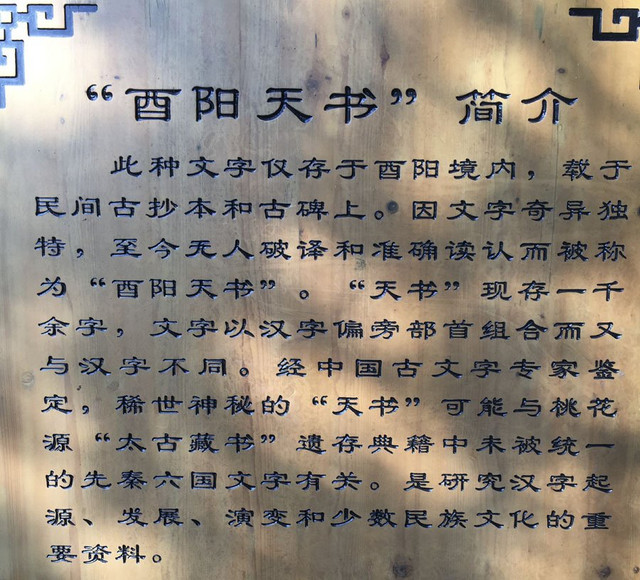 “酉阳天书”简介
此种文字仅存于酉阳境内，载于
民间古抄本和古碑上。因文字奇异独
特，至今无人破译和准确读认而被称
为“酉阳天书”。“天书”现存一千
余字，文字以汉字偏旁部首组合而又
与汉字不同。经中国古文字专家鉴
定，稀世神秘的“天书”可能与桃花
源“太古藏书”遗存典籍中未被统一
的先秦六国文字有关。是研究汉字起
源、发展、演变和少数民族文化的重
要资料。